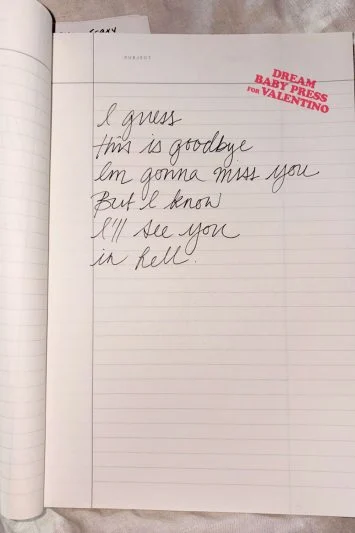 crazy
SUBJECT
DREAM
BABY PRESS
FOR VALENTINO
I guess
this is goodbye
Im gonna miss you
But I know
I'll see you
in hell.